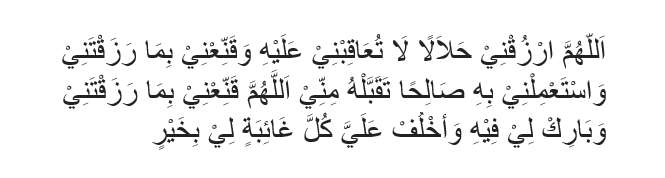 اَللّٰهُمَّ ارْزُقْنِيْ حَلاَلًا لَا تُعَاقِبْنِيْ عَلَيْهِ وَقَنِّعْنِيْ بِمَا رَزَقْتَنِيْ
وَاسْتَعْمِلْنِيْ بِهِ صَالِحًا تَقَبَّلْهُ مِنِّيْ اَللَّهُمَّ قَنِّعْنِيْ بِمَا رَزَقْتَنِيْ
وَبَارِكْ لِيْ فِيْهِ وَأخْلُفْ عَلَيَّ كُلَّ غَائِبَةٍ لِيْ بِخَيْرٍ